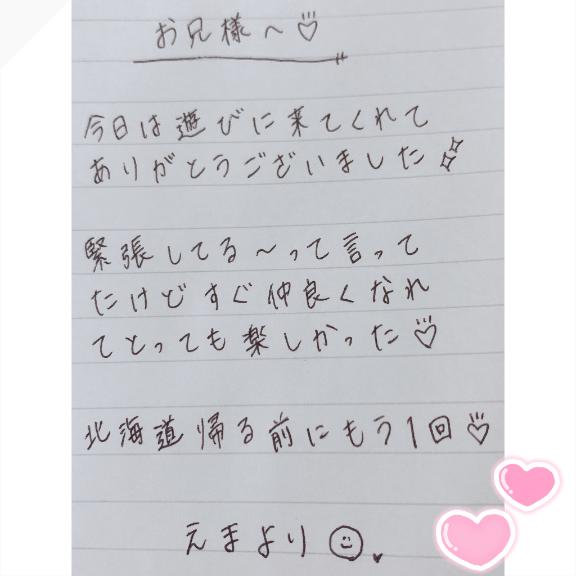 お兄様〜♡
今日は遊びに来てくれて
ありがとうございました
緊張してる〜って言って
たけどすぐ仲良くなれ
てとっても楽しかった♡
北海道帰る前にもう1回♡
えまより